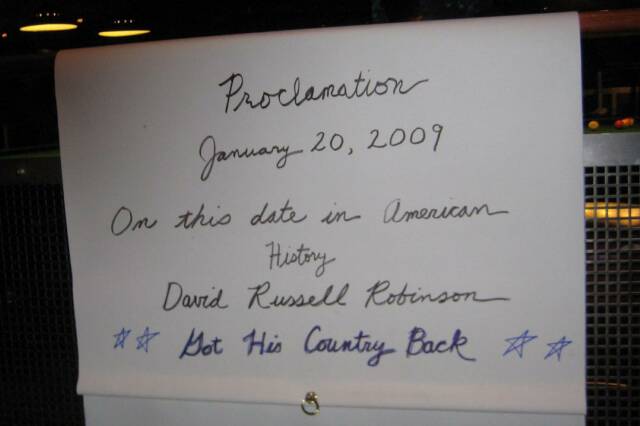 Proclamation
January 20, 2009
On this date in American
History
David Russell Robinson
☆☆ Got His Country Back ☆☆